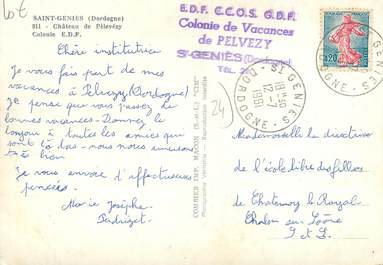 Lot
SAINT-GENIES (Dordogne)
811 - Château de Pelévézy
Colonie E.D.F.
Chère institutrice
Je vous fais part de mes
vacances à Pelvézy (Dordogne)
Je pense que vous passez de
bonnes vacances - Donnez le
bonjour à toutes les amies qui
sont là-bas - nous nous amusons
très bien
Je vous envoie d'affectueuses
pensées.
Marie Josèphe
COMBIER IMP. MACON (S.-et-L.) "CIM"
Photographie Véritable - Reproduction interdite
E.D.F. C.C.O.S. G.D.F.
Colonie de Vacances
de PELVEZY
St-GENIÈS (Dordogne)
TÉL.
ST GENIES
18H30
12-7
1961
DORDOGNE
0,20
24
Mademoiselle la directrice
de l'école libre des filles
de Chatenoy le Royal
Chalon sur Saône
S et L.